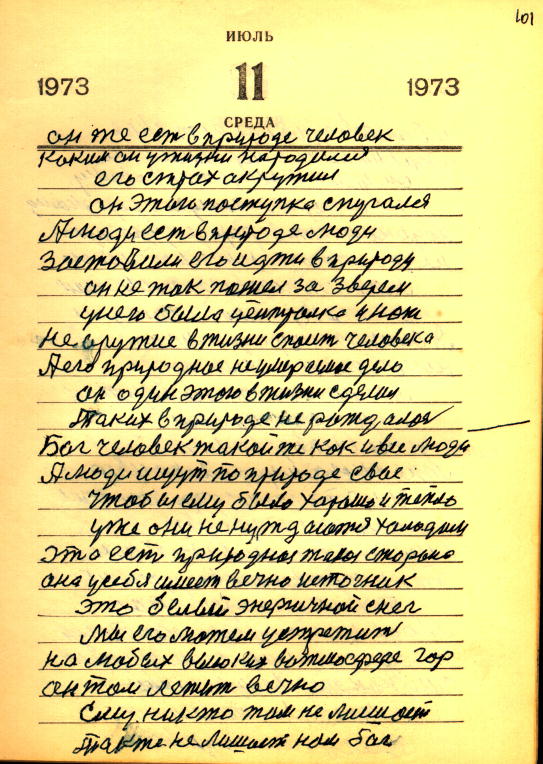 101
ИЮЛЬ
1973 11 1973
СРЕДА
он же ест в природе человек
каким он у жизни народился
его страх окружил
он этого поступка спугался
А люди ест в природе люди
Заставили его идти в природу
он не так пошел за зверем
у него была централка и нож
Не оружие в жизни споит человека
А его природное неумераемое дело
он один этого в жизни сделал
Таких в природе не рождалося
Бог человек такой же как и все люди
А люди ишут по природе свае
чтобы ему было харашо и тепло
уже они не нуждаются халадам
это ест природная такая сторона
она у себя имеет вечно источник
это белый энергичной снег
мы его можем устретит
на любых высоких в атмосфере гор
он там лежит вечно
Ему никто там не мешает
также не мешает нам бог